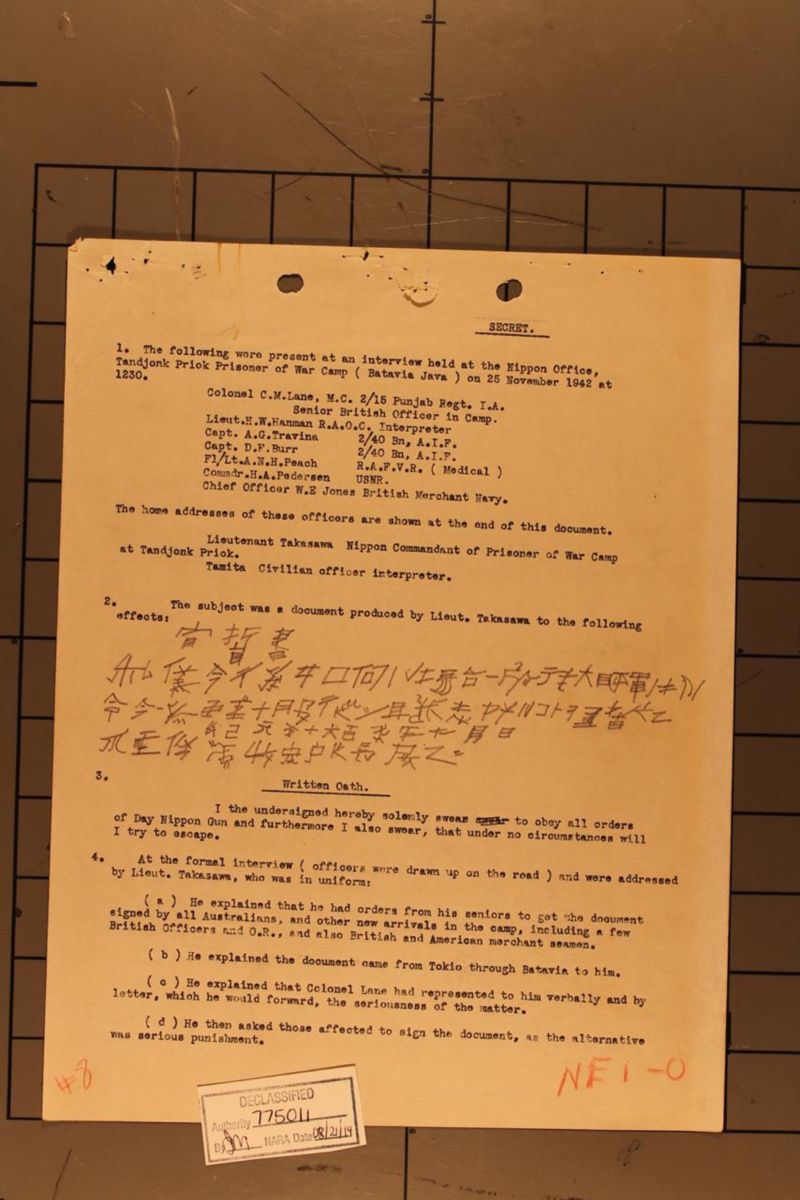 SECRET.
1. The following were present at an interview held at the Nippon Office,
Tandjonk Priok Prisoner of War Camp ( Batavia Java ) on 25 November 1942 at
1230.
Colonel C.M.Lane, M.C. 2/15 Punjab Regt. I.A.
Senior British Officer in Camp.
Lieut.H.W.Hanman R.A.O.C. Interpreter
Capt. A.G.Travina 2/40 Bn, A.I.F.
Capt. D.F.Burr 2/40 Bn, A.I.F.
Fl/Lt.A.N.H.Peach R.A.F.V.R. ( Medical )
Commdr.H.A.Pedersen USNR.
Chief Officer W.E Jones British Merchant Navy.
The home addresses of these officers are shown at the end of this document.
Lieutenant Takasawa Nippon Commandant of Prisoner of War Camp
at Tandjonk Priok.
Tamita Civilian officer interpreter.
2. The subject was a document produced by Lieut. Takasawa to the following
effects:
3.
Written Oath.
I the undersigned hereby solemly swear to obey all orders
of Day Nippon Gun and furthermore I also swear, that under no circumstances will
I try to escape.
4. At the formal interview ( officers were drawn up on the road ) and were addressed
by Lieut. Takasawa, who was in uniform:
( a ) He explained that he had orders from his seniors to get the document
signed by all Australians, and other new arrivals in the camp, including a few
British Officers and O.R., and also British and American merchant seamen.
( b ) He explained the document came from Tokio through Batavia to him.
( c ) He explained that Colonel Lane had represented to him verbally and by
letter, which he would forward, the seriousness of the matter.
( d ) He then asked those affected to sign the document, as the alternative
was serious punishment.
#8
NEI-O
DECLASSIFIED
Authority 775011
By NARA Date 08/21/14